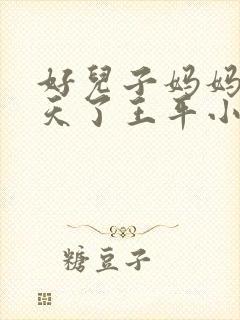 好兒子妈妈
天了王平小
糖豆子